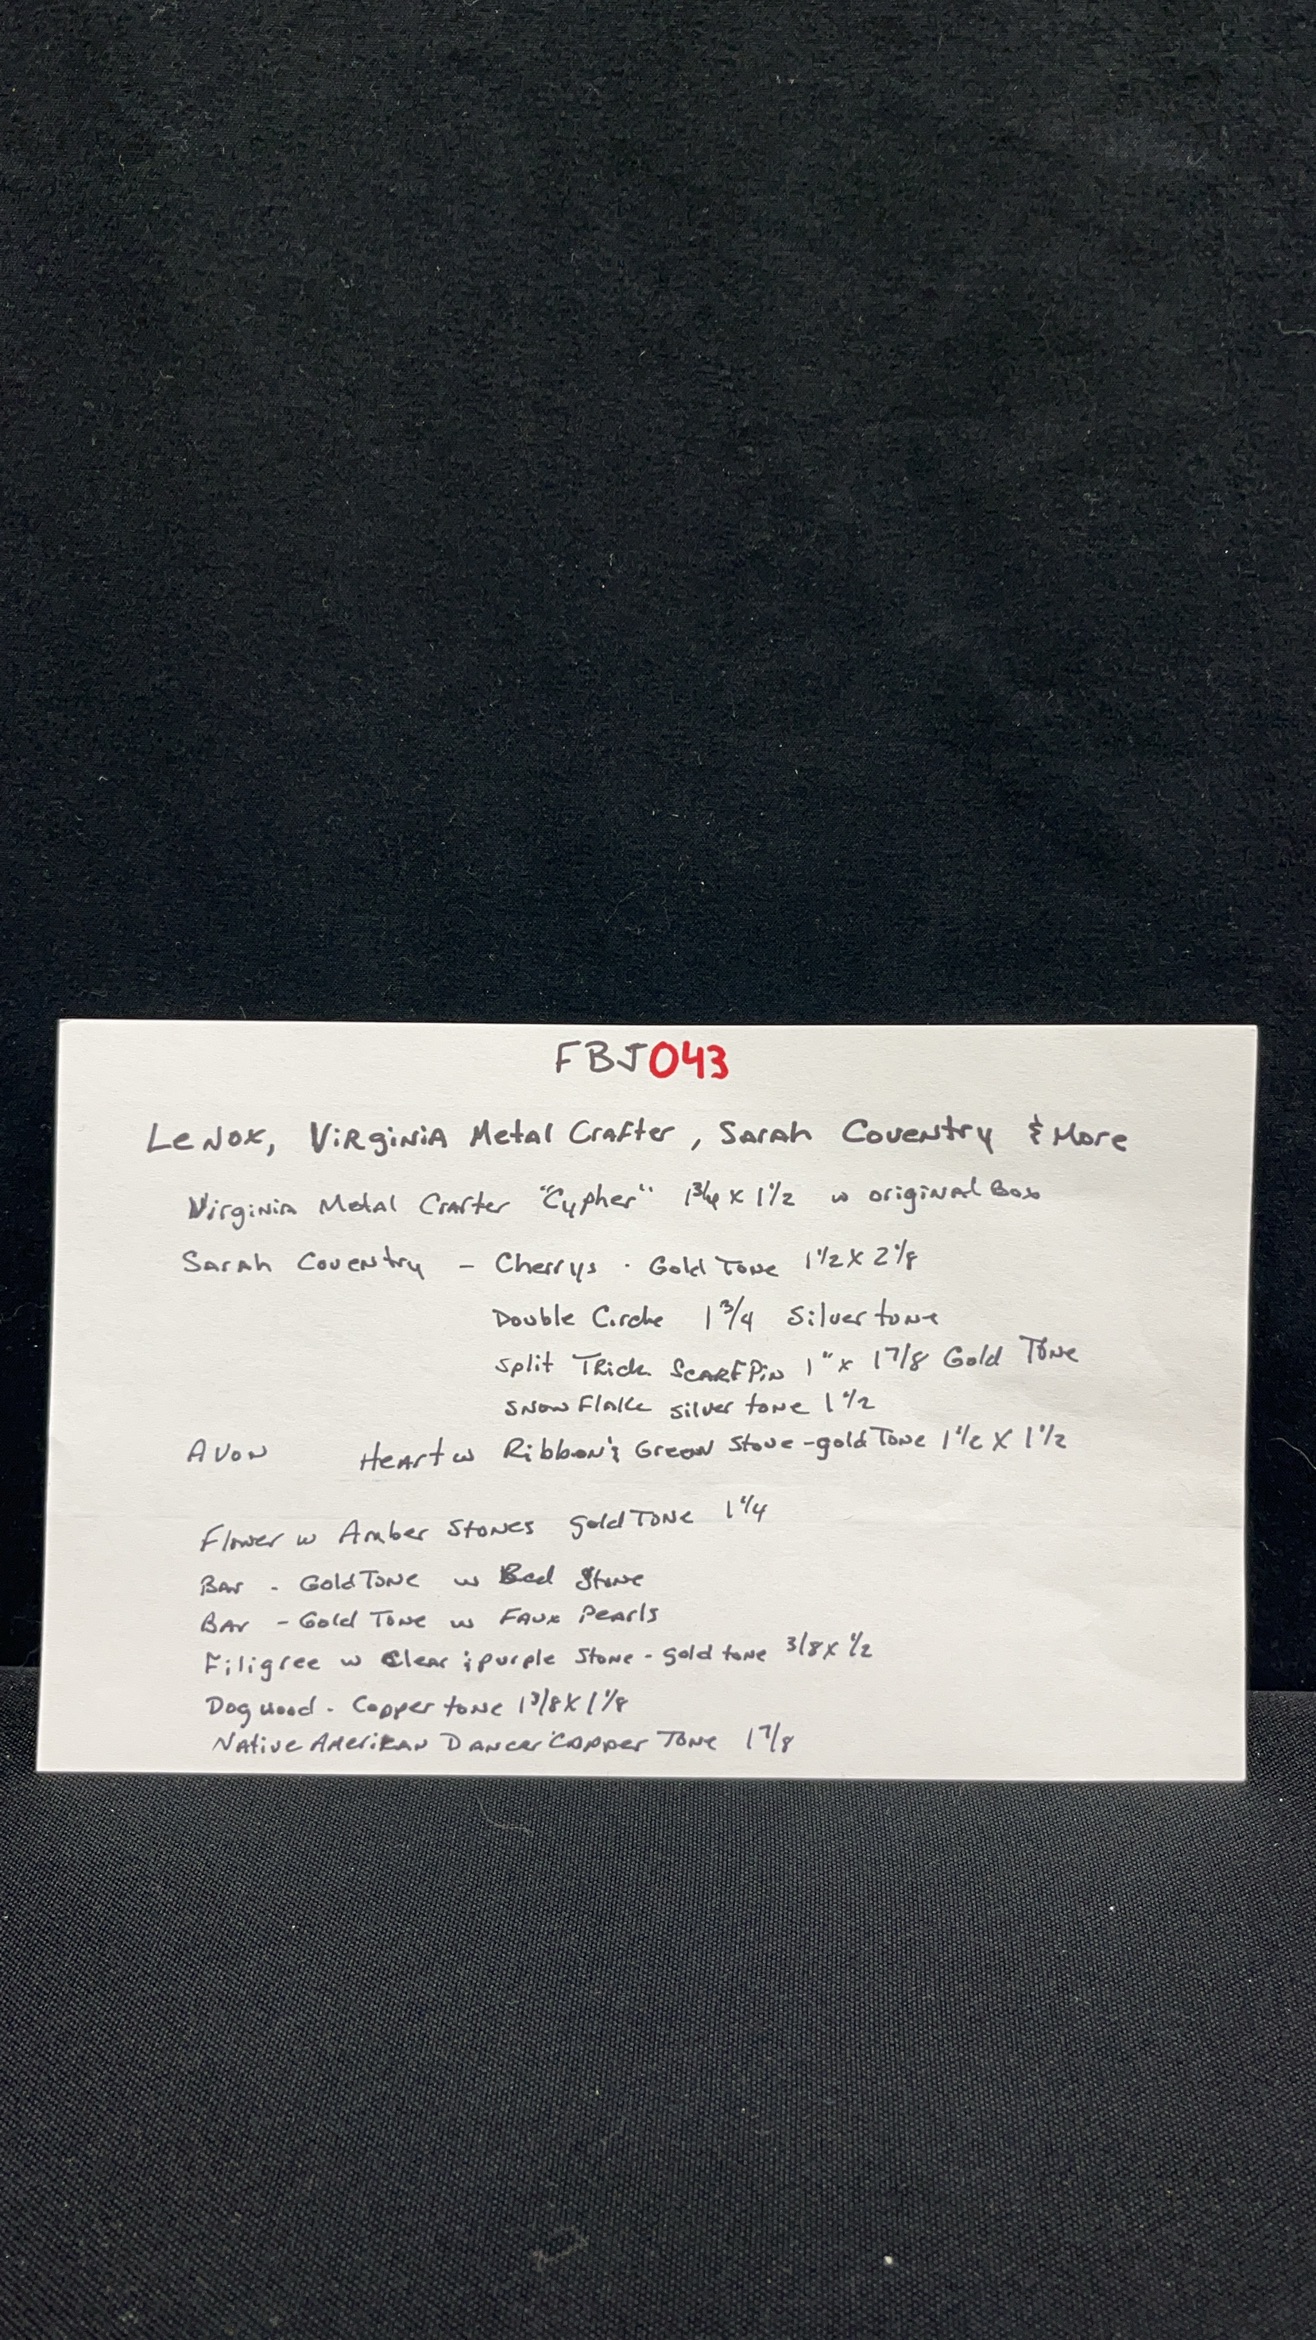 FBJ043
Lenox, Virginia Metal Crafter, Sarah Coventry & More
Virginia Metal Crafter "Cypher" 1 3/4 x 1 1/2 w original Box
Sarah Coventry - Cherrys - Gold Tone 1 1/2 x 2 1/8
Double Circle 1 3/4 Silver tone
Split Thick Scarf Pin 1" x 1 7/8 Gold Tone
Snow Flake silver tone 1 1/2
Avon Heart w Ribbon & Green Stone - gold Tone 1 1/2 x 1 1/2
Flower w Amber Stones gold Tone 1 1/4
Bar - Gold Tone w Stone
Bar - Gold Tone w Faux Pearls
Filigree w Clear & purple Stone - gold tone 3/8 x 1/2
Dogwood - Copper tone 1 3/8 x 1 1/8
Native Amerikan Dancer Copper Tone 1 7/8